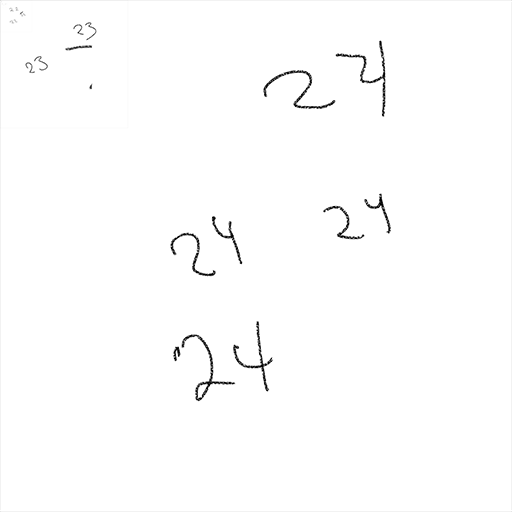 23
23
24
24 24
24